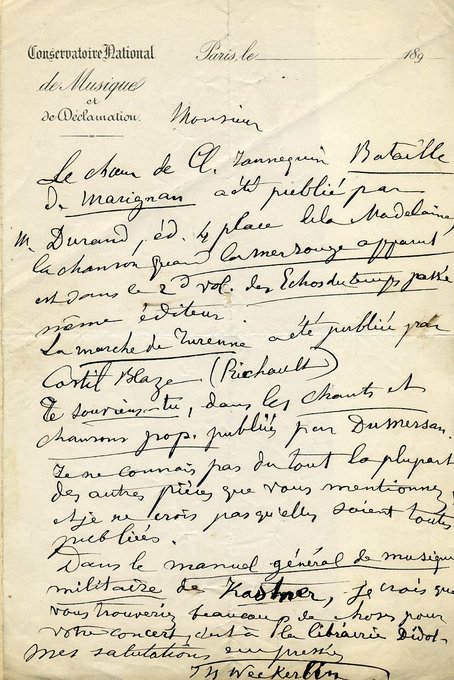 Conservatoire National
de Musique
et
de Déclamation.
Paris, le 189
Monsieur
Le chœur de Cl. Jannequin Bataille
de Marignan a été publié par
M. Durand, éd. 4 place de la Madelaine,
la chanson quand la mer rouge apparut
est dans le 2d vol. des Echos du temps passé
même éditeur.
La marche de Turenne a été publiée par
Castil Blaze (Richault)
Te souviens-tu, dans les chants et
chansons pop. publiés par Dumersan.
Je ne connais pas du tout la plupart
des autres pièces que vous mentionnez,
et je ne crois pas qu'elles soient toutes
publiées.
Dans le manuel général de musique
militaire de Kastner, je crois que
vous trouveriez beaucoup de choses pour
votre concert, c'est à la librairie Didot.
Mes salutations empressées
JB Weckerlin